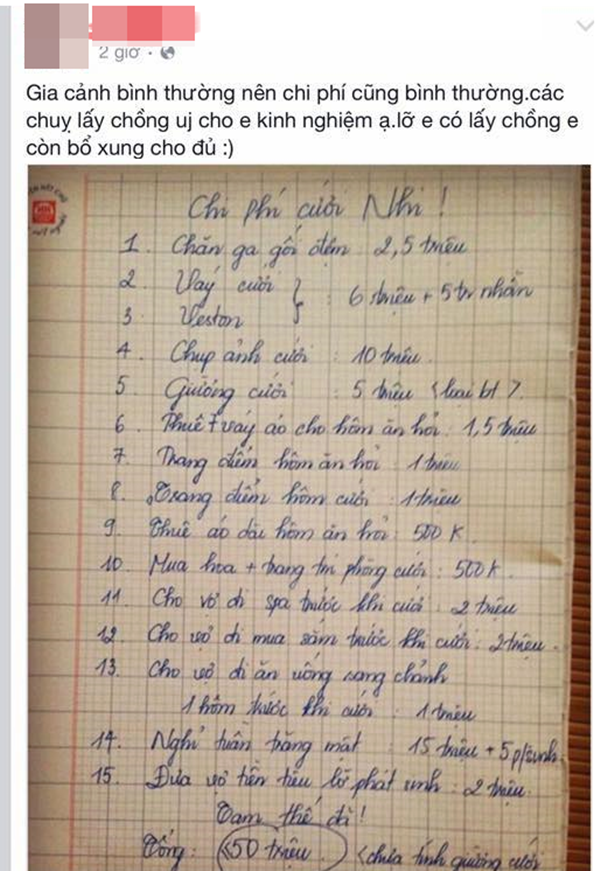 2 giờ
Gia cảnh bình thường nên chi phí cũng bình thường.các
chuỵ lấy chồng uj cho e kinh nghiệm ạ.lỡ e có lấy chồng e
còn bổ xung cho đủ :)
Chi phí cưới Nhi !
1. Chăn ga gối đệm : 2,5 triệu
2. Váy cưới
: 6 triệu + 5tr nhẫn
3. Veston
4. Chụp ảnh cưới : 10 triệu.
5. Giường cưới : 5 triệu < loại bt >.
6. Thuê váy áo cho hôm ăn hỏi : 1,5 triệu
7. Trang điểm hôm ăn hỏi : 1 triệu
8. Trang điểm hôm cưới : 1 triệu
9. Thuê áo dài hôm ăn hỏi : 500 K.
10. Mua hoa + trang trí phòng cưới : 500 K.
11. Cho vợ đi spa trước khi cưới : 2 triệu
12. Cho vợ đi mua sắm trước khi cưới : 2 triệu.
13. Cho vợ đi ăn uống sang chảnh
1 hôm trước khi cưới : 1 triệu
14. Nghỉ tuần trăng mật : 15 triệu + 5 p/sinh.
15. Đưa vợ tiền tiêu lỡ phát sinh : 2 triệu.
Tạm thế đã !
Tổng : 50 triệu. < chưa tính giường cưới